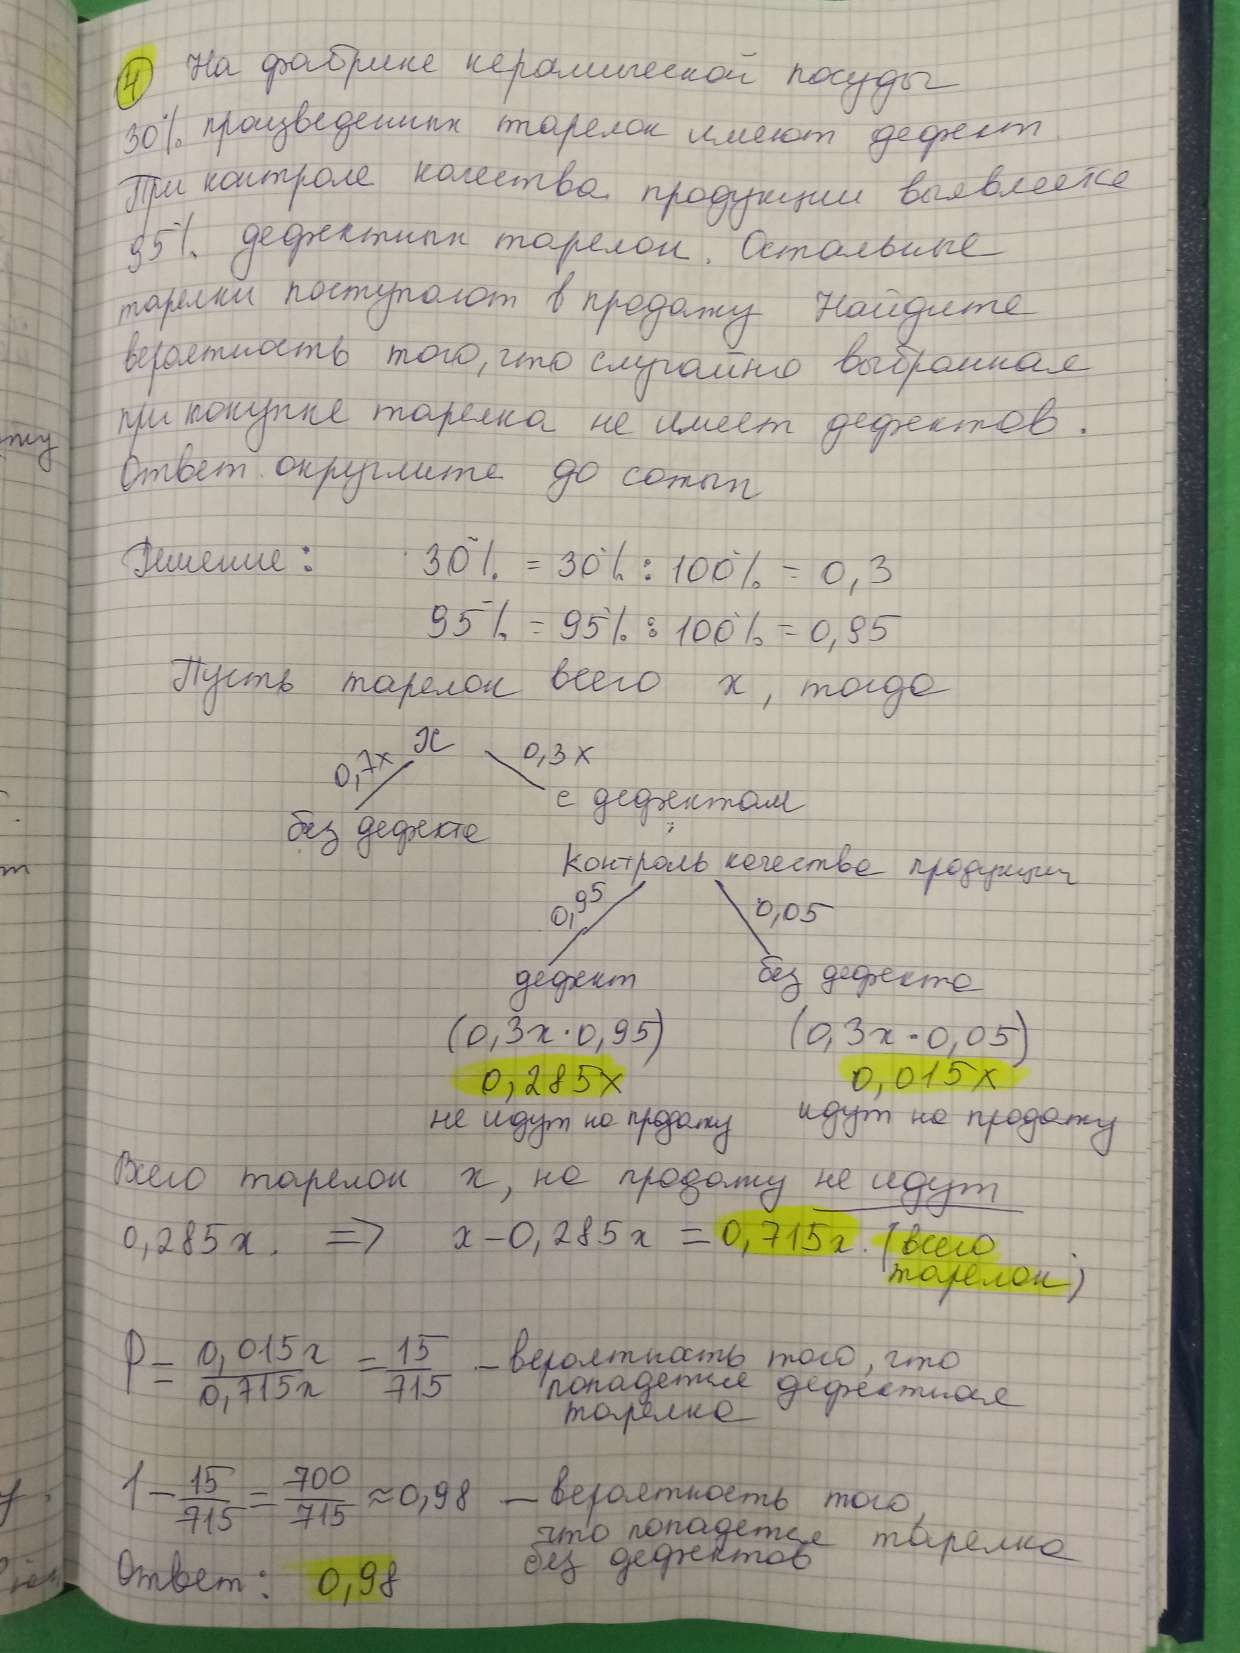 4 На фабрике керамической посуды
30% произведенных тарелок имеют дефект
При контроле качества продукции выявляется
95% дефектных тарелок. Остальные
тарелки поступают в продажу Найдите
вероятность того, что случайно выбранная
при покупке тарелка не имеет дефектов.
Ответ округлите до сотых
Решение: 30% = 30% : 100% = 0,3
95% = 95% : 100% = 0,95
Пусть тарелок всего x, тогда
x
0,7x 0,3x
с дефектом
без дефекта
Контроль качества продукции
0,95 0,05
дефект без дефекта
(0,3x · 0,95) (0,3x · 0,05)
0,285x 0,015x
не идут на продажу идут на продажу
Всего тарелок x, на продажу не идут
0,285x. => x – 0,285x = 0,715x. (всего
тарелок)
P = 0,015x / 0,715x = 15/715 – вероятность того, что
попадется дефектная
тарелка
1 – 15/715 = 700/715 ≈ 0,98 – вероятность того,
что попадется тарелка
без дефектов
Ответ: 0,98